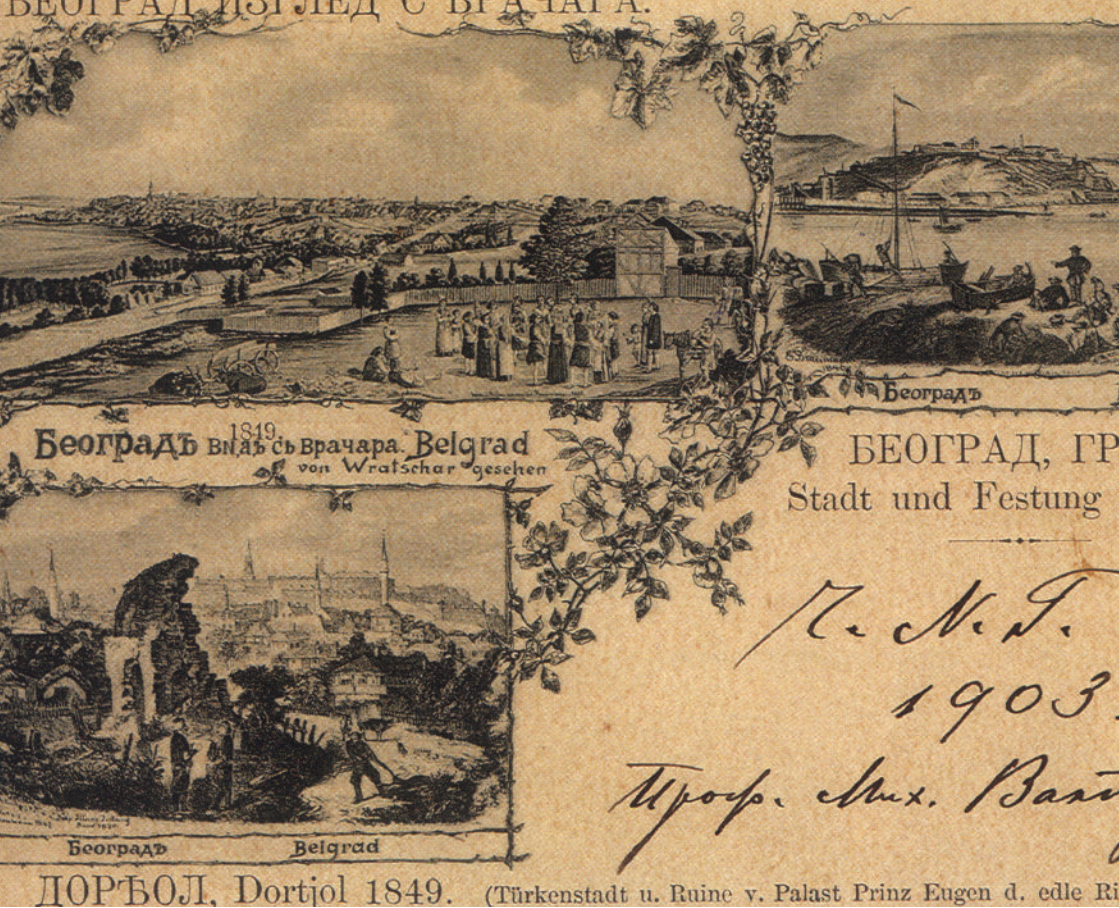 БЕОГРАД ИЗГЛЕД С ВРАЧАРА.
Београдъ
1849.
Београдъ съ Врачара. Belgrad
von Wratschar gesehen
БЕОГРАД, ГР
Stadt und Festung
Ч. М. Т.
1903
Проф. Мих.
Београдъ Belgrad
ДОРЂОЛ, Dortjol 1849. (Türkenstadt u. Ruine v. Palast Prinz Eugen d. edle Ri